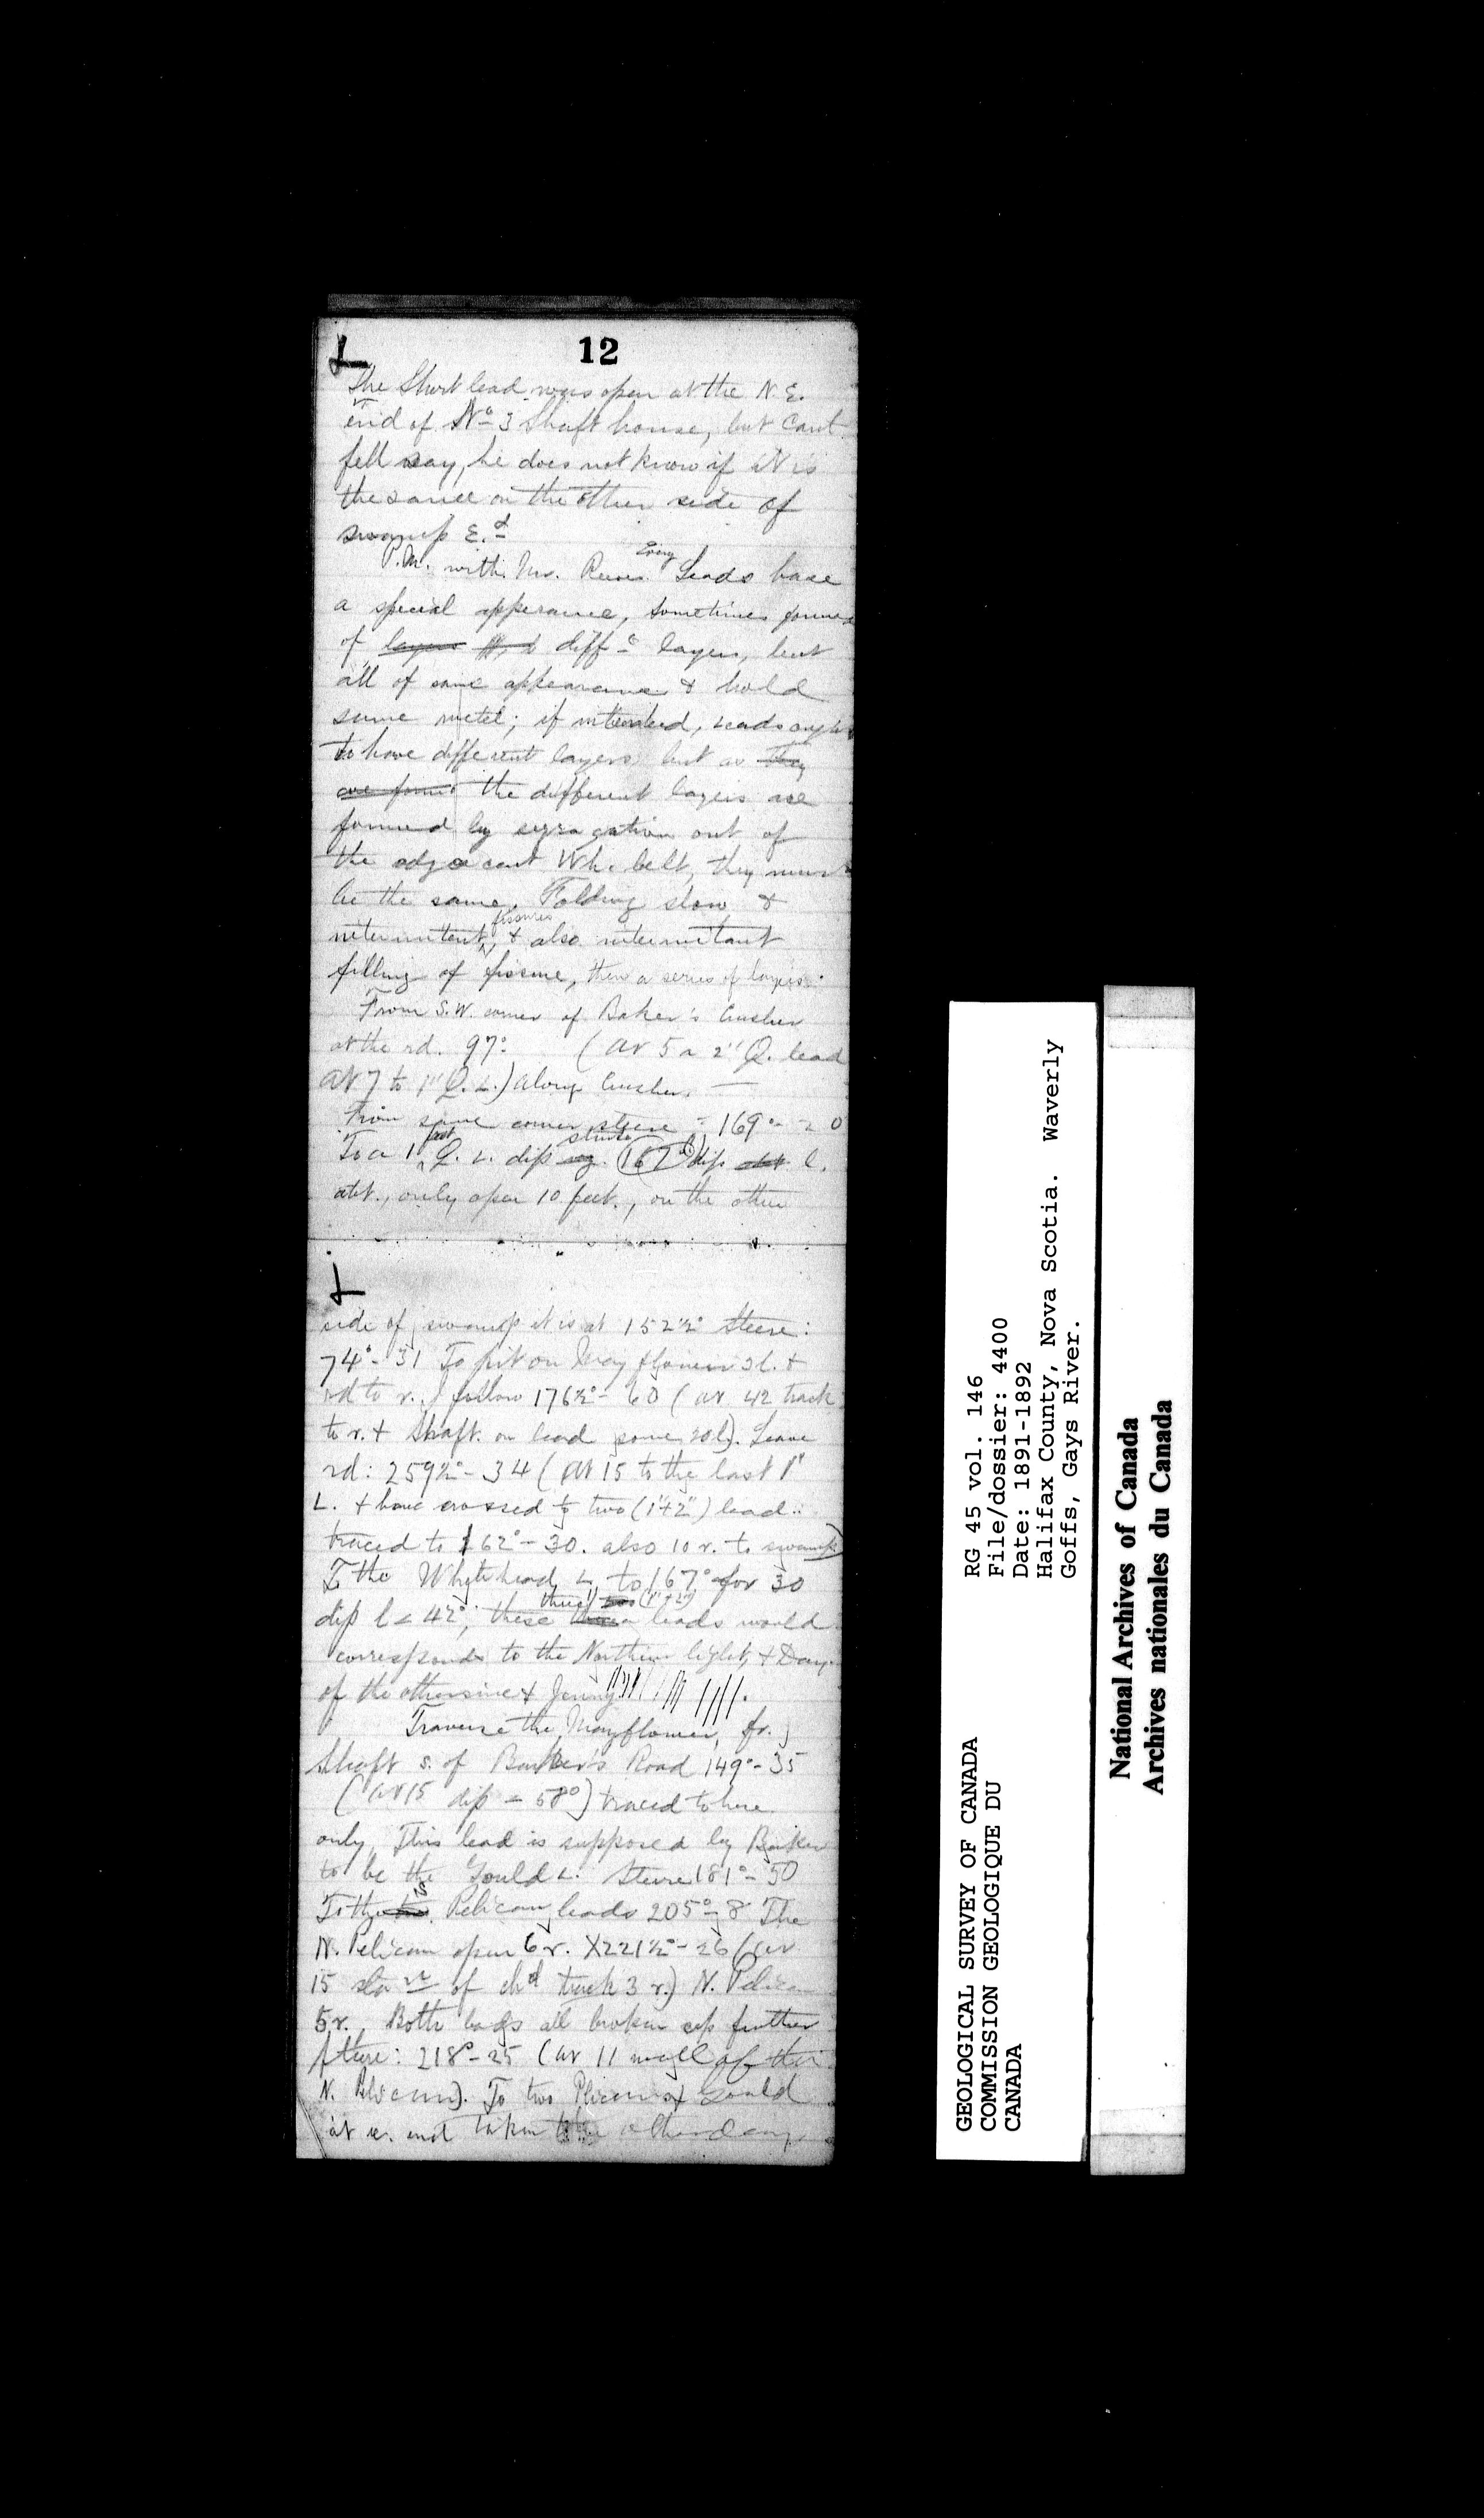 12
The Short lead was open at the N.E.
end of No 3 Shaft house, but Cant
fell say, he does not know if it is
the same on the other side of
swamp E.d
P.M. with Mr. Every Leads have
a special apperance, sometimes
of layers diff t layers, but
all of same appearance & hold
same metel; if intended, leads ought
to have different layers but as they
are formed the different layers are
formed by segregation out of
the adjacent Wh. belt, they must
be the same. Folding slow &
intermitent, fissures & also intermitant
filling of fissure, then a series of layers.
From S.W. corner of Baker's Crusher
at the rd. 97° (at 5 a 2" Q. lead
at 7 to 1" Q.L.) along Crusher. —
From same corner steere = 169° - 20
To a 1 foot Q. L. dip (162°) dip l.
att., only open 10 feet., on the other
side of swamp it is at 152½° Steere:
74° - 31 To pit on Mayflower 3l. &
rd to r. follow 176½° - 60 (at 42 track
to r. & Shaft on lead some 20l). Leave
rd: 259½° - 34 (at 15 to the last 1"
L. & have crossed to two (1"+2") lead..
traced to 162° - 30. also 10 r. to swamp)
To the Whitehead L to 167° for 30
dip l = 42°, these three (1"+2") leads would
correspond to the Northern light, & Day
of the & Jenny
Traverse the Mayflower, fr.
Shaft s. of Barker's Road 149° - 35
(at 15 dip = 58°) traced to here
only. This lead is supposed by Barker
to be the Gould L. Steere 181° - 50
To the S Pelican leads 205° - 8 The
N. Pelican open 6 r. X 221½° - 26 (at
15 of track 3 r.) N. Pelican
5 r. Both leads all broken up further
steere: 218° - 25 (at 11 of the
N. Pelican). To two Pelicans & Gould
at w. end taken the other day
RG 45 vol. 146
File/dossier: 4400
Date: 1891-1892
Halifax County, Nova Scotia. Waverly
Goffs, Gays River.
GEOLOGICAL SURVEY OF CANADA
COMMISSION GEOLOGIQUE DU
CANADA
National Archives of Canada
Archives nationales du Canada